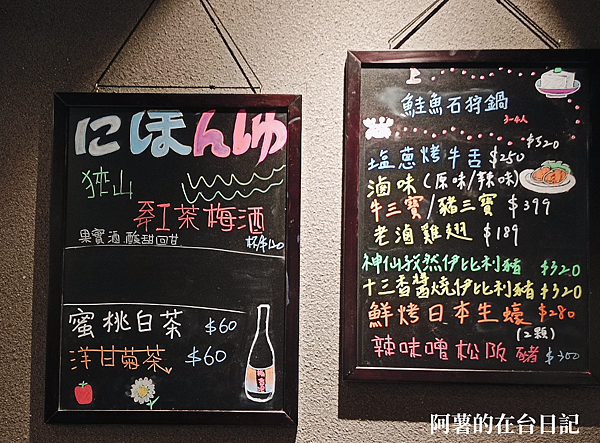 にほんしゅ
独山
紅茶梅酒
果實酒.酸甜回甘
杯/$120
蜜桃白茶 $60
洋甘菊茶 $60
梅酒
上
鮭魚石狩鍋
3-4人
$520
塩蔥烤牛舌 $250
滷味(原味/辣味)
牛三寶/豬三寶 $399
老滷雞翅 $189
神仙孜然伊比利豬 $320
十三香醬燒伊比利豬 $320
鮮烤日本生蠔 $280
(2顆)
辣味噌松阪豬 $300
阿薯的在台日記